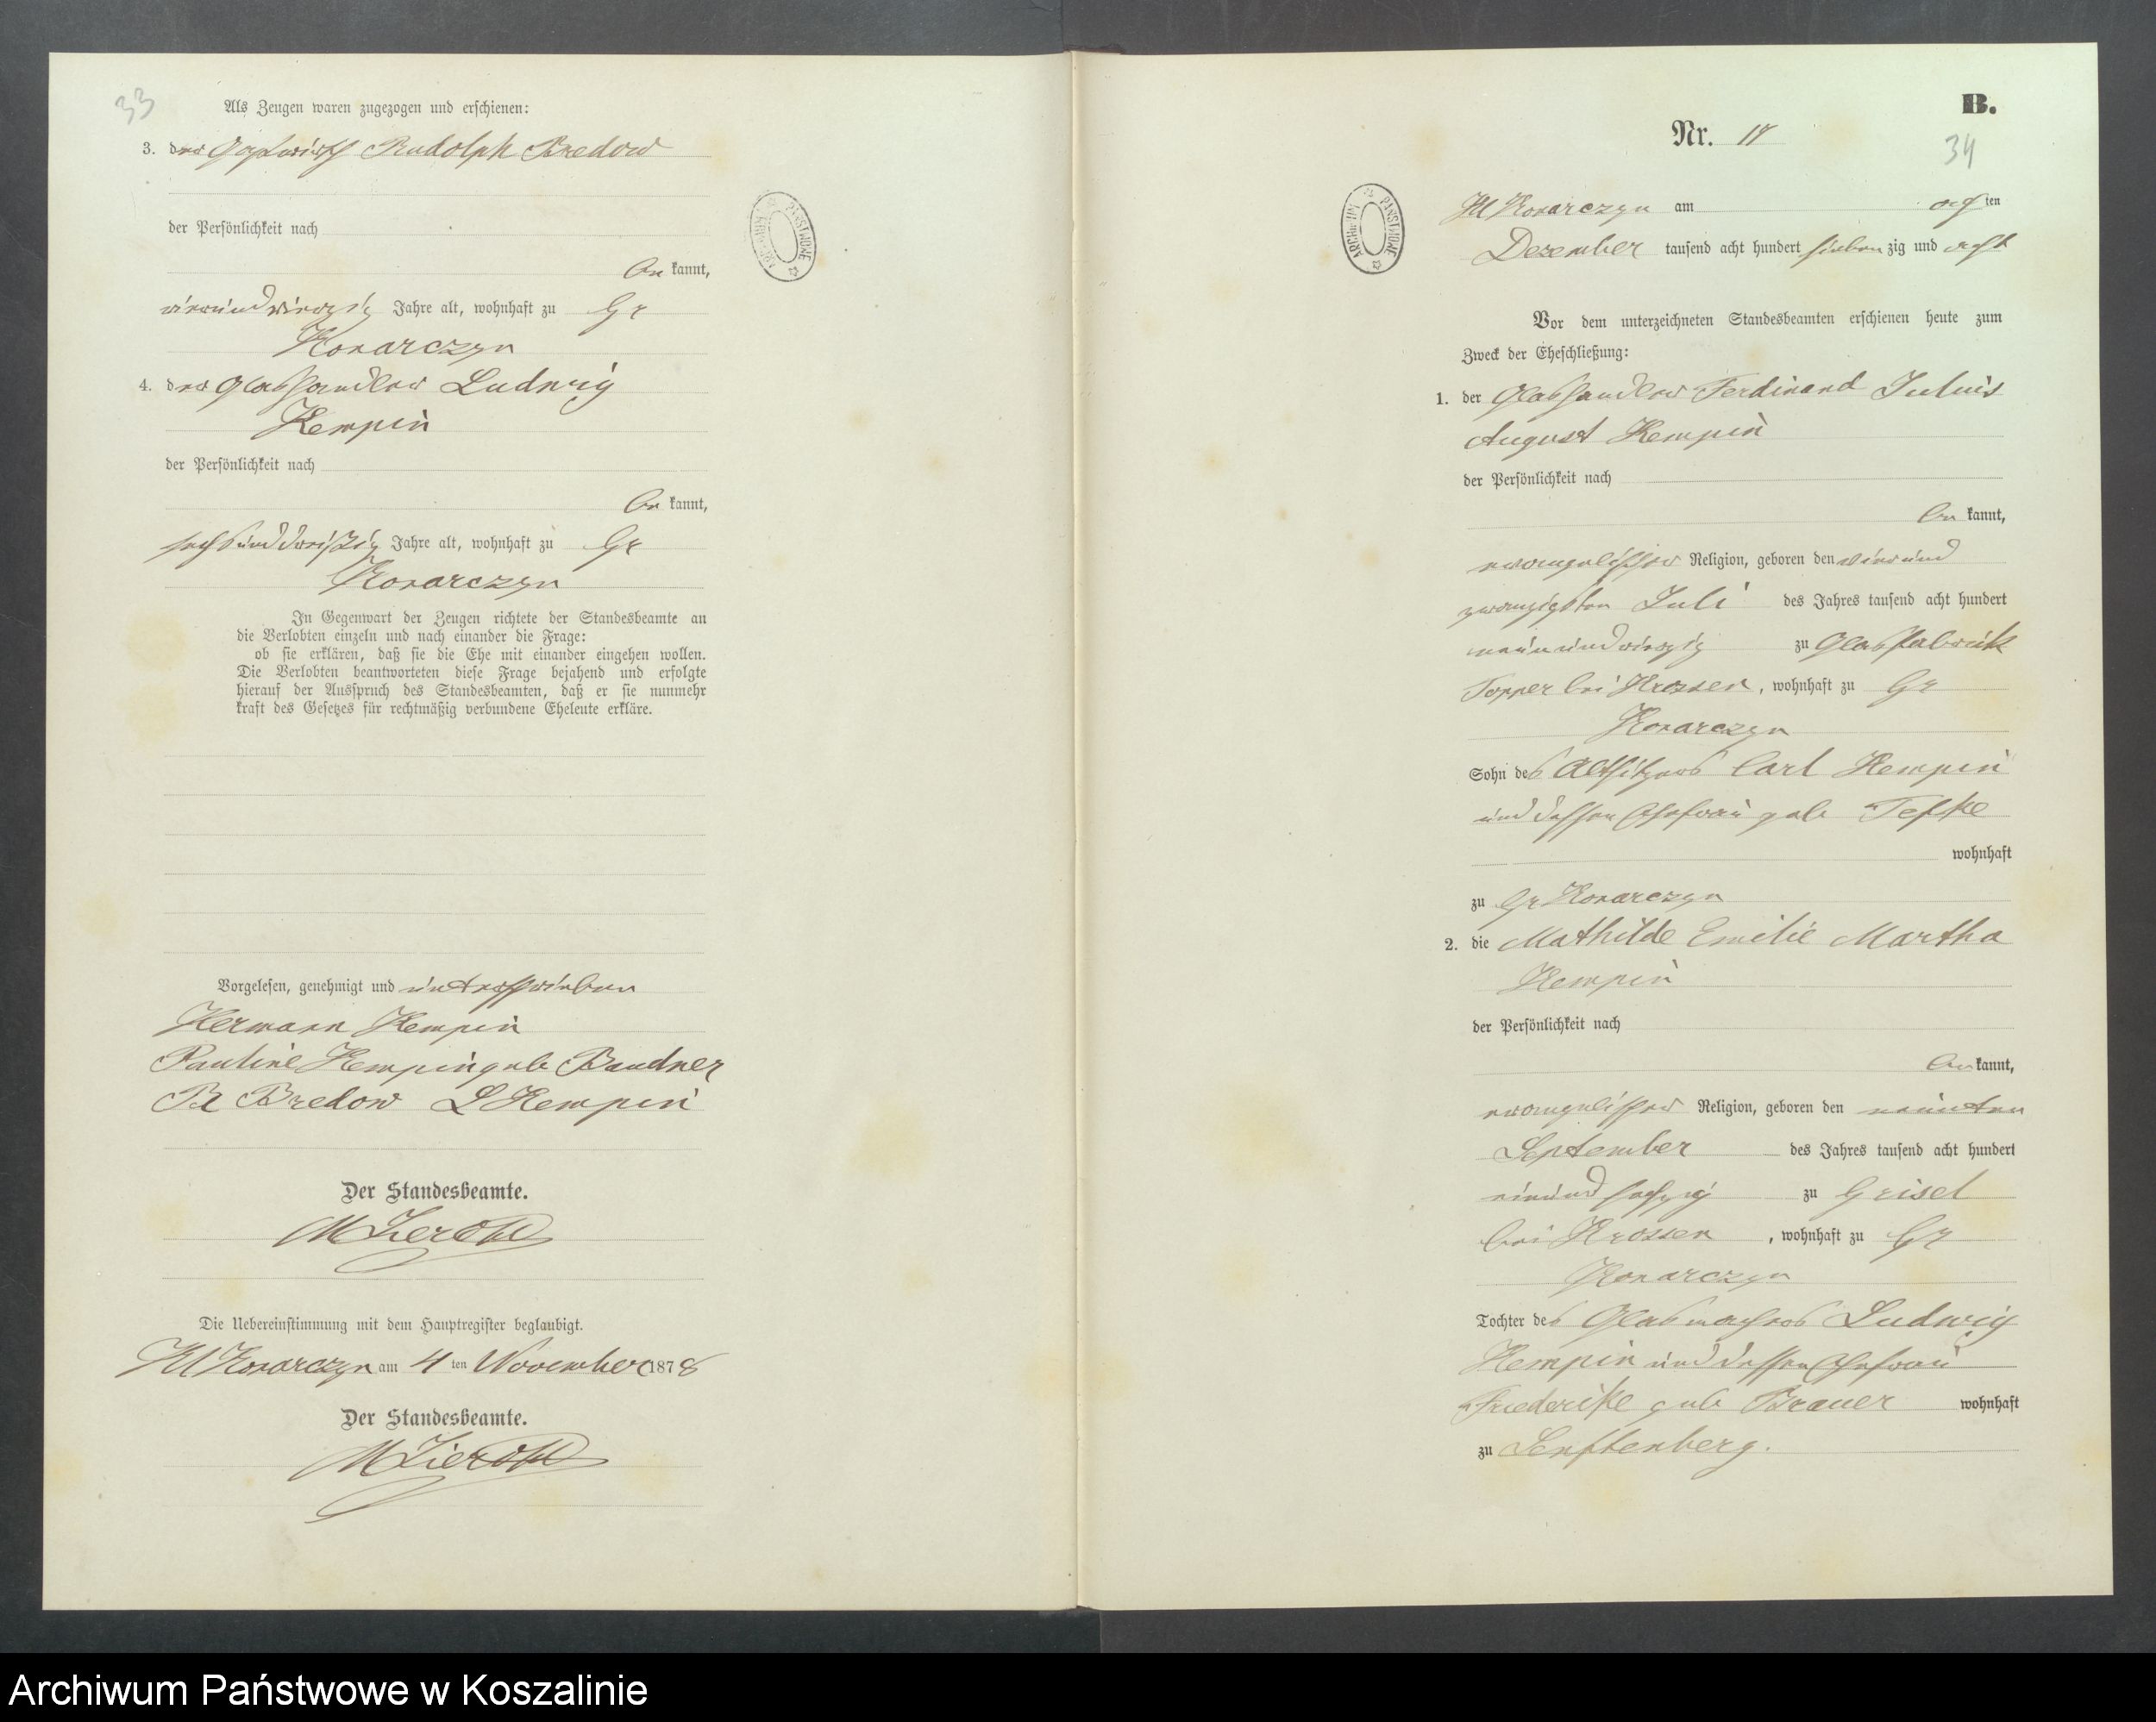 33
Als Zeugen waren zugezogen und erschienen:
3. der Gastwirth Rudolph Bredow
der Persönlichkeit nach
be kannt,
vierundvierzig Jahre alt, wohnhaft zu Gr
Konarczyn
4. der Glashandler Ludwig
Kempin
der Persönlichkeit nach
be kannt,
sechsunddreißig Jahre alt, wohnhaft zu Gr
Konarczyn
In Gegenwart der Zeugen richtete der Standesbeamte an
die Verlobten einzeln und nach einander die Frage:
ob sie erklären, daß sie die Ehe mit einander eingehen wollen.
Die Verlobten beantworteten diese Frage bejahend und erfolgte
hierauf der Ausspruch des Standesbeamten, daß er sie nunmehr
kraft des Gesetzes für rechtmäßig verbundene Eheleute erkläre.
Vorgelesen, genehmigt und unterschrieben
Hermann Kempin
Pauline Kempin geb Baudner
R Bredow L Kempin
Der Standesbeamte.
Die Uebereinstimmung mit dem Hauptregister beglaubigt.
Kl Konarczyn am 4 ten November 1878
Der Standesbeamte.
ARCHIWUM PAŃSTWOWE
B.
Nr. 17
34
ARCHIWUM PAŃSTWOWE
Kl Konarczyn am acht ten
Dezember tausend acht hundert sieben zig und acht
Vor dem unterzeichneten Standesbeamten erschienen heute zum
Zweck der Eheschließung:
1. der Glashandler Ferdinand Julius
August Kempin
der Persönlichkeit nach
be kannt,
evangelischer Religion, geboren den vierund
zwanzigsten Juli des Jahres tausend acht hundert
neunundvierzig zu Glasfabrik
Topper bei Krossen, wohnhaft zu Gr
Konarczyn
Sohn des Altsitzers Carl Kempin
und dessen Ehefrau geb Teske
wohnhaft
zu Gr Konarczyn
2. die Mathilde Emilie Martha
Kempin
der Persönlichkeit nach
be kannt,
evangelischer Religion, geboren den neunten
September des Jahres tausend acht hundert
einund sechzig zu Griesel
bei Krossen, wohnhaft zu Gr
Konarczyn
Tochter des Glasmachers Ludwig
Kempin und dessen Ehefrau
Friederike geb Brauer wohnhaft
zu Senftenberg.
Archiwum Państwowe w Koszalinie